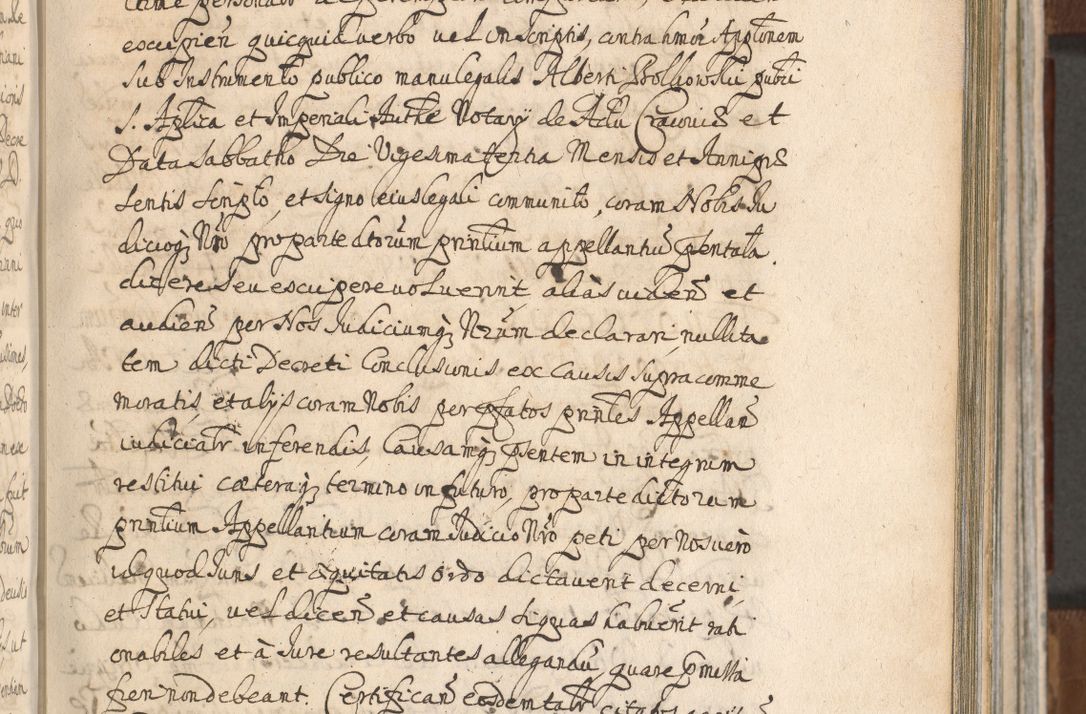 excipien quicquid verbo vel in scriptis, contra hmoi Applonem
sub Instrumento publico manu legalis Alberti pubci
S. Aplica et Imperiali Authe Notarij de Actu Cracoviæ et
Data Sabbatho Die Vigesima tertia Mensis et Anni præ
sentis scripto, et signo eius legali communito, coram Nobis Ju
dicioq; Nro pro parte dtorum prntium appellantiu pntata.
dicere seu excipere voluerint alias viden et
audien per Nos Judiciumq; Nrum declarari, nullita
tem dicti Decreti Conclusionis ex Causis supra comme
moratis et alijs coram Nobis per pfatos prntes Appellan
iudicialr inferendis, Causamq; pntem in integrum
restitui cæteraq; termino in futuro, pro parte dictorum
prntium Appellantium coram Judicio Nro peti per Nos vero
id quod Juris et æquitatis ordo dictaverit decerni,
et statui, vel dicen et causas si quas habuerit rati
onabiles et à Jure resultantes allegandu quare pmissa
fieri non debeant. Certifican eosdem citatos